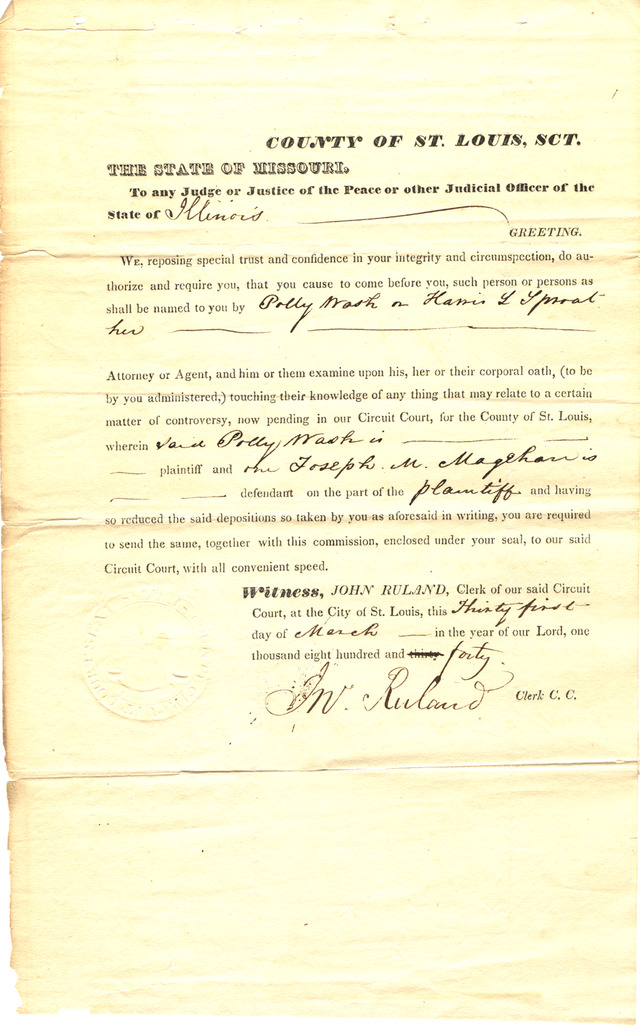 COUNTY OF ST. LOUIS, SCT.
THE STATE OF MISSOURI.
To any Judge or Justice of the Peace or other Judicial Officer of the
State of Illinois
GREETING.
WE, reposing special trust and confidence in your integrity and circumspection, do au-
thorize and require you, that you cause to come before you, such person or persons as
shall be named to you by Polly Wash or Harris L Sproat
her
Attorney or Agent, and him or them examine upon his, her or their corporal oath, (to be
by you administered,) touching their knowledge of any thing that may relate to a certain
matter of controversy, now pending in our Circuit Court, for the County of St. Louis,
wherein said Polly Wash is
plaintiff and one Joseph. M. Magehan is
defendant on the part of the plaintiff and having
so reduced the said depositions so taken by you as aforesaid in writing, you are required
to send the same, together with this commission, enclosed under your seal, to our said
Circuit Court, with all convenient speed.
Witness, JOHN RULAND, Clerk of our said Circuit
Court, at the City of St. Louis, this Thirty first
day of March in the year of our Lord, one
thousand eight hundred and thirty forty.
Jno. Ruland Clerk C. C.